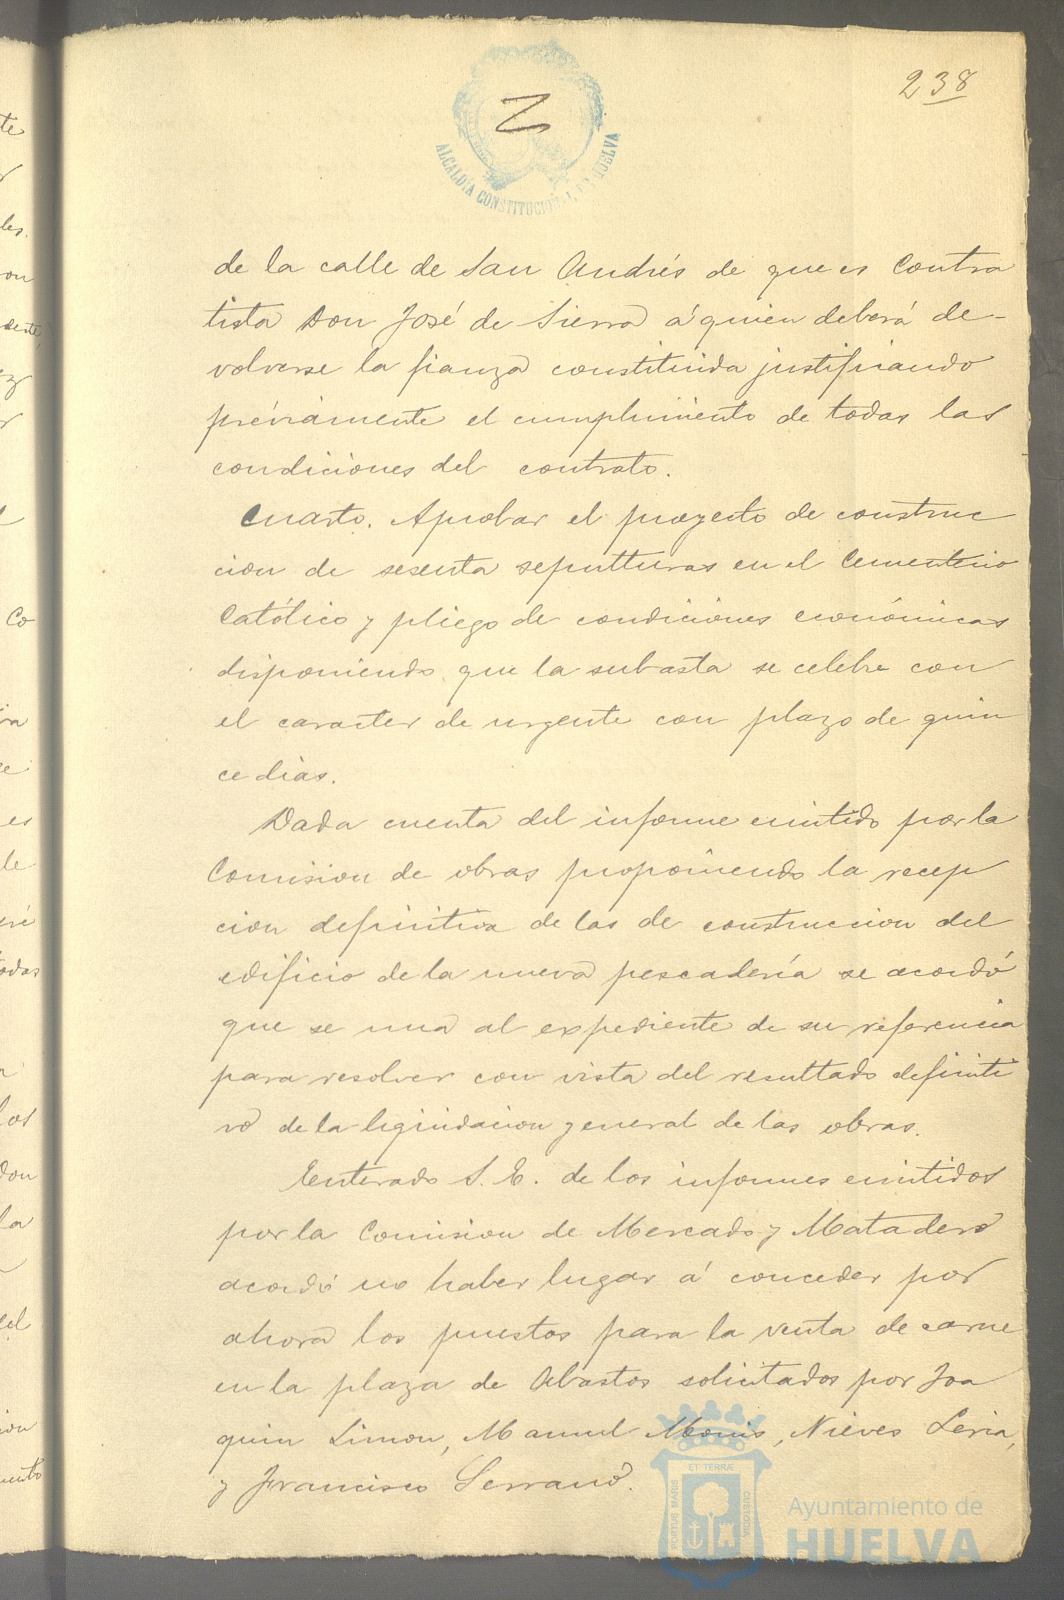 238
Z
ALCALDÍA CONSTITUCIONAL HUELVA
de la calle de San Andrés de que es Contra
tista Don José de Sierra á quien deberá de-
volverse la fianza constituida justificando
préviamente el cumplimiento de todas las
condiciones del contrato.
Cuarto. Aprobar el proyecto de construc
cion de sesenta sepulturas en el Cementerio
Católico y pliego de condiciones económicas
disponiendo que la subasta se celebre con
el caracter de urgente con plazo de quin
ce dias.
Dada cuenta del informe emitido por la
Comision de obras proponiendo la recep
cion definitiva de las de construccion del
edificio de la nueva pescadería se acordó
que se una al expediente de su referencia
para resolver con vista del resultado definiti
vo de la liquidacion general de las obras.
Enterado S. E. de los informes emitidos
por la Comision de Mercado y Matadero
acordó no haber lugar á conceder por
ahora los puestos para la venta de carne
en la plaza de Abastos solicitados por Joa
quin Limon, Manuel Monis, Nieves Leria,
y Francisco Serrano.
PORTUS MARIS ET TERRÆ CUSTODIA
Ayuntamiento de
HUELVA